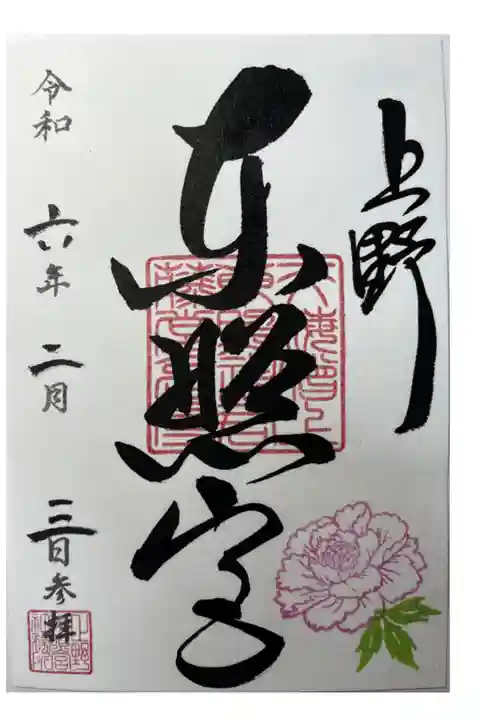 上野
東照宮
令和 六年 二月 三日参拝